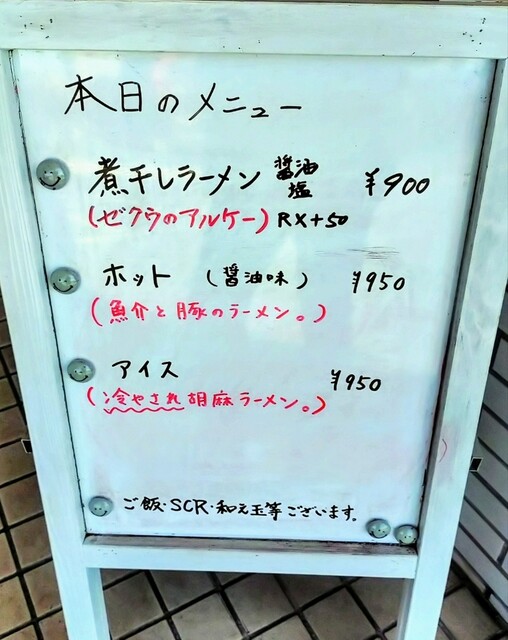 本日のメニュー
煮干しラーメン 醤油 塩 ¥900
(ゼクウのアルケー) RX+50
ホット (醤油味) ¥950
(魚介と豚のラーメン。)
アイス ¥950
(冷やされ胡麻ラーメン。)
ご飯・SCR・和え玉等ございます。